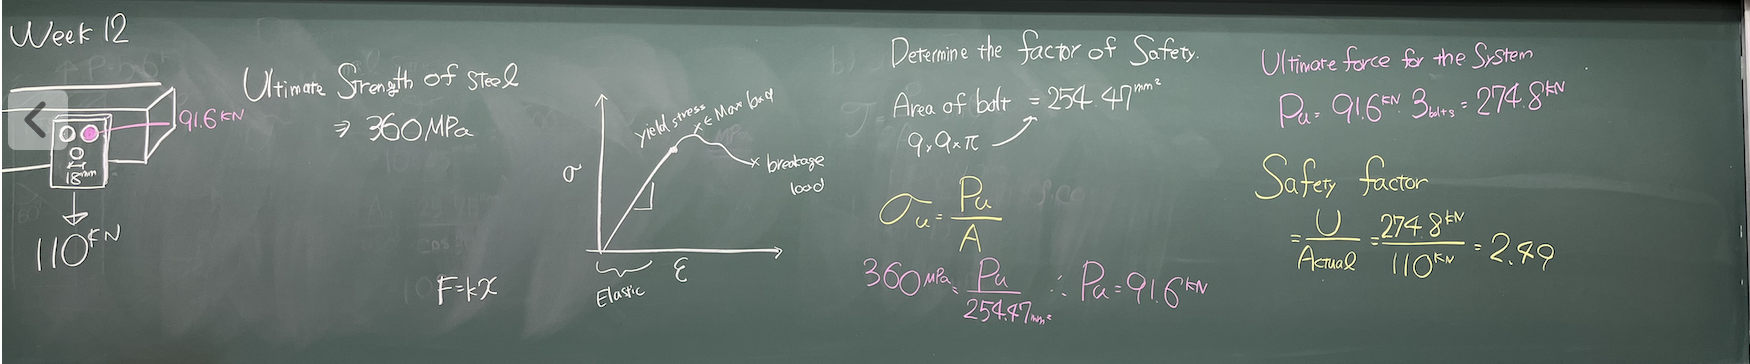 Week 12
91.6 kN
18mm
110 kN
Ultimate Strength of steel
⇒ 360 MPa
F=kx
σ
yield stress
x ← Max load
x breakage
load
ε
Elastic
Determine the factor of Safety.
Area of bolt = 254.47 mm²
9×9×π
σu = Pu / A
360 MPa = Pu / 254.47 mm² ∴ Pu = 91.6 kN
Ultimate force for the System
Pu = 91.6 kN · 3 bolts = 274.8 kN
Safety factor
= U / Actual = 274.8 kN / 110 kN = 2.49